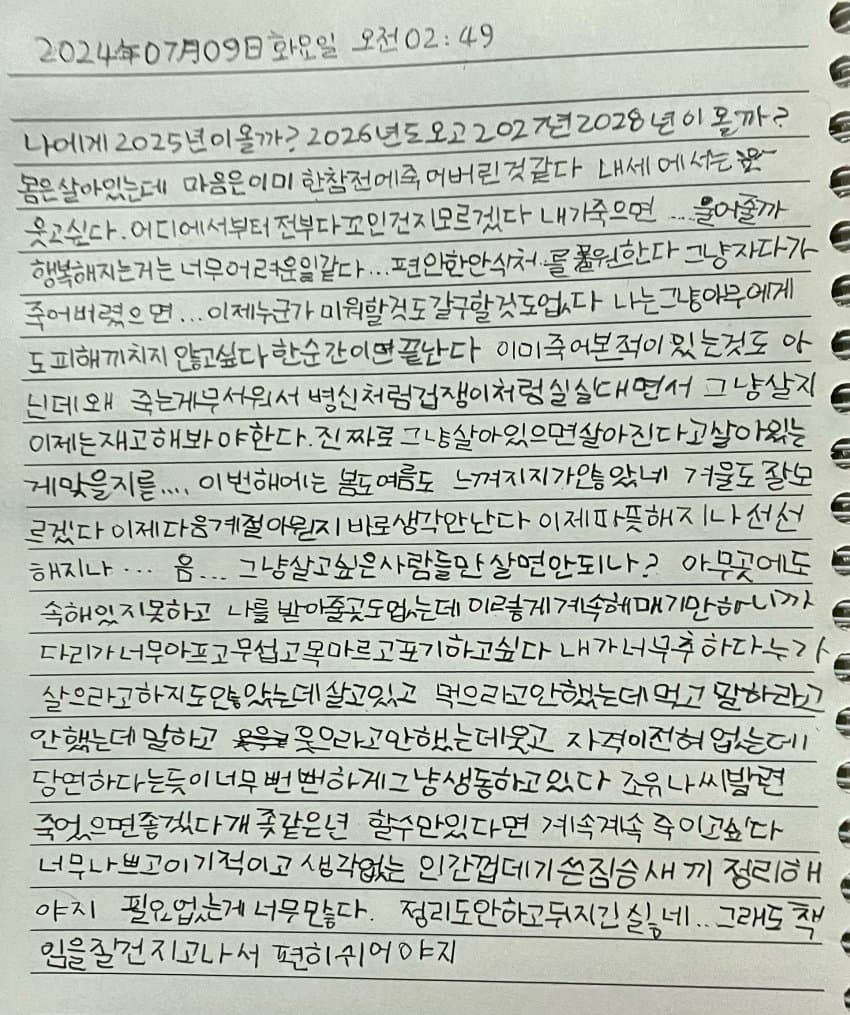 2024年07月09日화요일 오전02:49
나에게2025년이올까? 2026년도오고2027년2028년이 올까?
몸은살아있는데 마음은이미 한참전에죽어버린것같다 내세에서는꼭
웃고싶다. 어디에서부터전부다꼬인건지모르겠다 내가죽으면 ... 울어줄까
행복해지는거는너무어려운일같다... 편안한안식처 를 꿈원한다 그냥자다가
죽어버렸으면... 이제누군가 미워할것도갈구할것도없다 나는그냥아무에게
도피해끼치지 않고싶다한순간이면끝난다 이미죽어본적이 있는것도 아
닌데왜 죽는게무서워서 병신처럼겁쟁이처럼실실대면서 그냥살지
이제는재고해봐야한다. 진짜로그냥살아있으면살아진다고살아있는
게맞을지를.... 이번해에는 봄도여름도 느껴지지가않았네 겨울도잘모
르겠다 이제다음계절이뭔지바로생각안난다 이제따뜻해지나 선선
해지나 ... 음... 그냥살고싶은사람들만 살면안되나? 아무곳에도
속해있지못하고 나를받아줄곳도없는데이렇게계속헤매기만하니까
다리가너무아프고무섭고목마르고포기하고싶다 내가너무추하다누가
살으라고하지도않았는데살고있고 먹으라고안했는데먹고 말하라고
안했는데말하고 웃으라고안했는데웃고 자격이전혀없는데
당연하다는듯이너무뻔뻔하게그냥생동하고있다 조유나씨발련
죽었으면좋겠다개좆같은년 할수만있다면 계속계속죽이고싶다
너무나쁘고이기적이고 생각없는 인간껍데기쓴짐승새끼 정리해
야지 필요없는게너무많다. 정리도안하고뒤지긴싫네.. 그래도책
임을잘건지고나서 편히쉬어야지